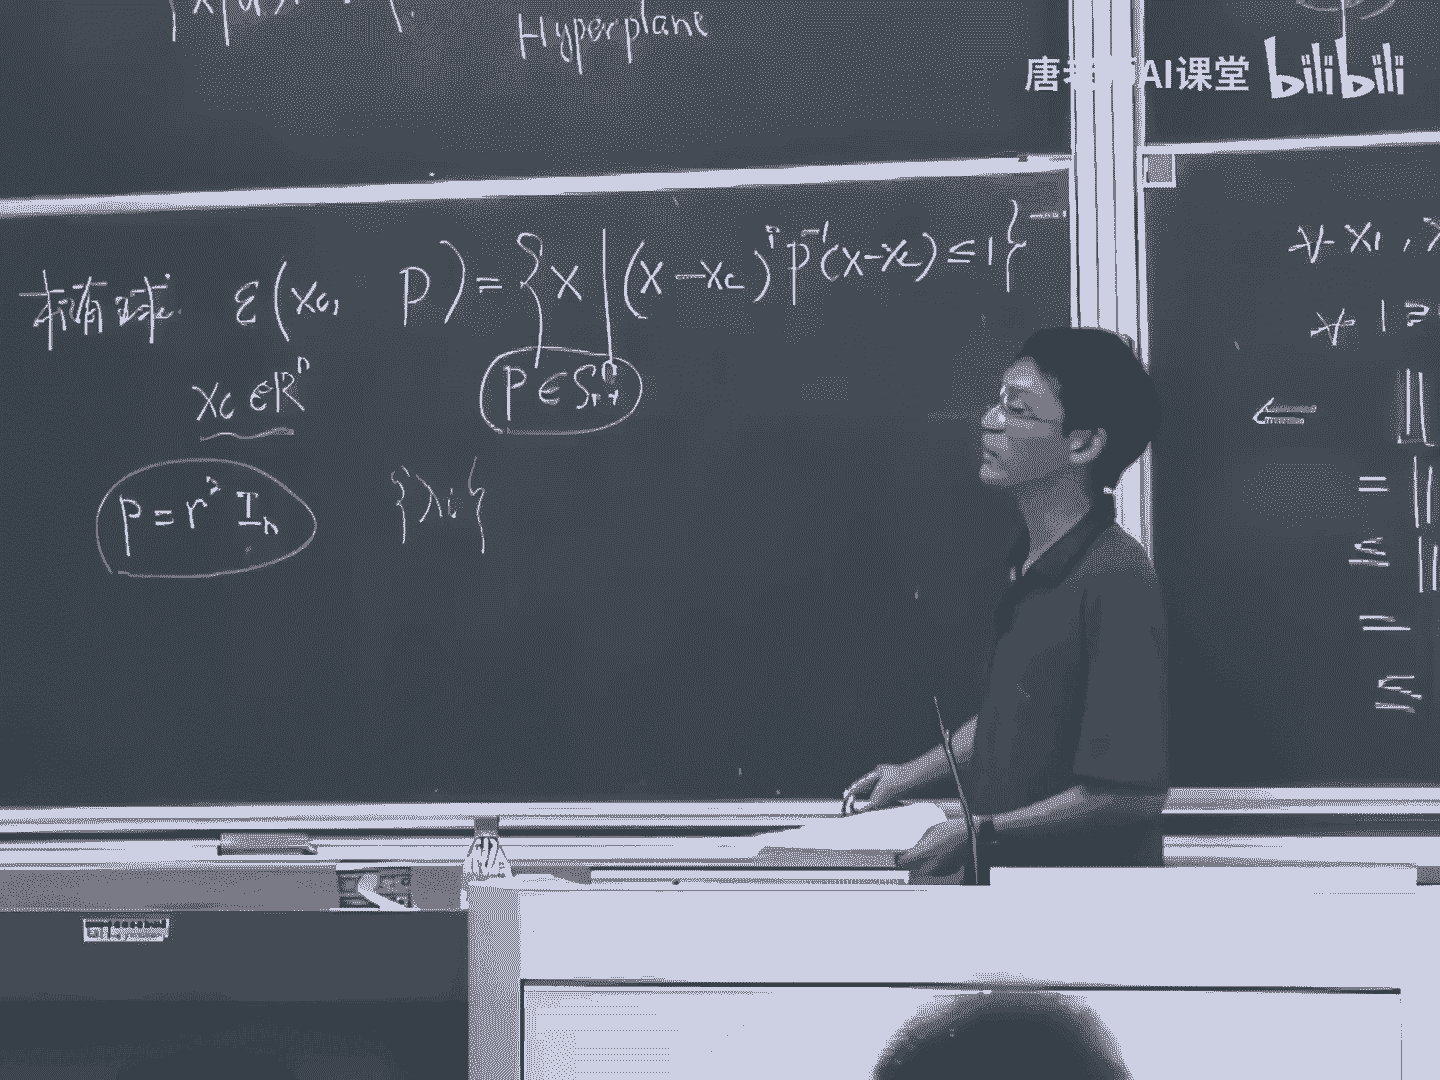 Hyperplane
唐 AI课堂 bilibili
椭球 ε(xc, P) = {x | (x-xc)ᵀ P⁻¹ (x-xc) ≤ 1}
xc ∈ Rⁿ P ∈ Sⁿ₊₊
P = r² Iₙ {λi}
∀ x₁,
∀ 1 ≥
⇐ ||
= ||
≤ ||
=
≤